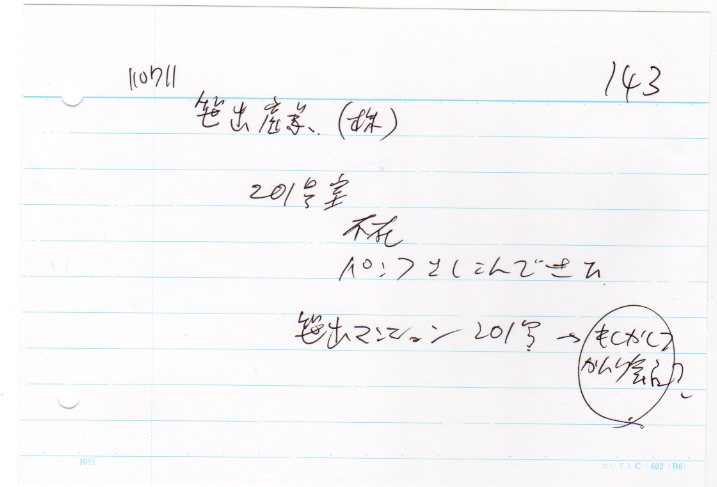 110711
143
笹出産業、(株)
201号室
不在
パンフとしこんできた
笹出マンション 201号 → もしかして
かんり会社?
10行
コレクト C-602 (B6)